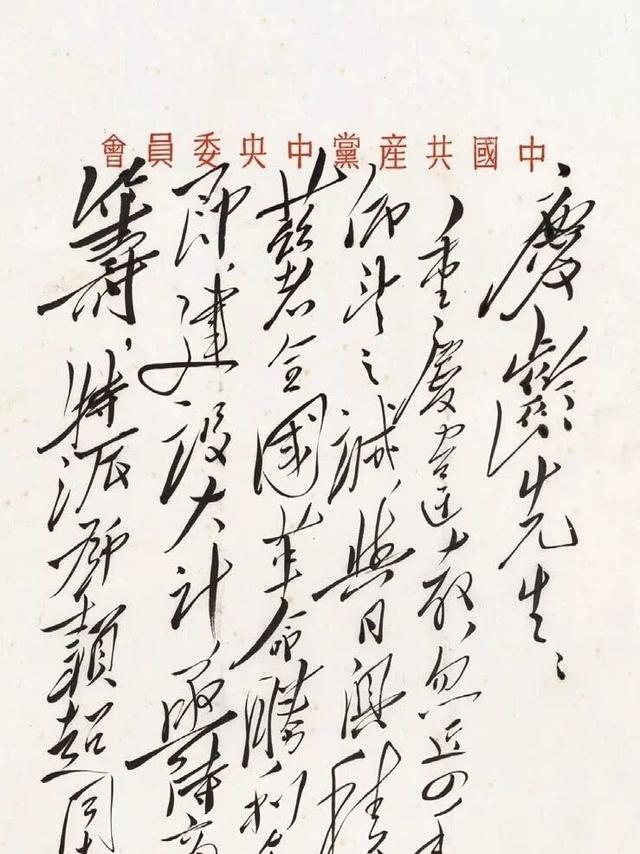 中國共產黨中央委員會
慶齡先生：
重慶違大教，忽近四年
仰望之誠，與日俱積
茲者全國革命勝利在
即，建設大計，亟待商
籌，特派鄧穎超同